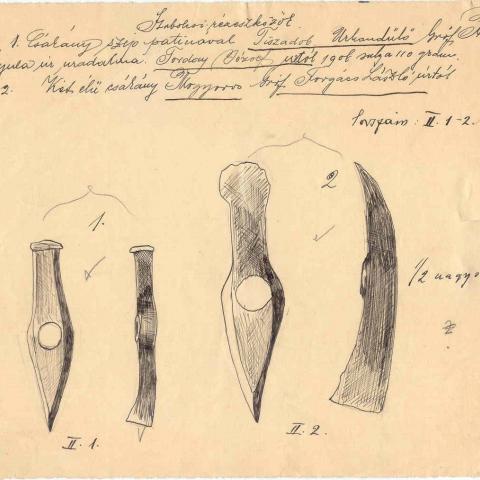 Szabolcsi rézeszközök.
1. Csákány szép patinával Tiszadob Urkomdűlő Gróf
Gyula úr uradalma. Jósday úrtól 1908 sulya 110 gramm.
2. Két élű csákány Mogyorós Gróf Forgács László úrtól
sorszám: II. 1-2.
1.
2
1/2 nagys
II. 1.
II. 2.